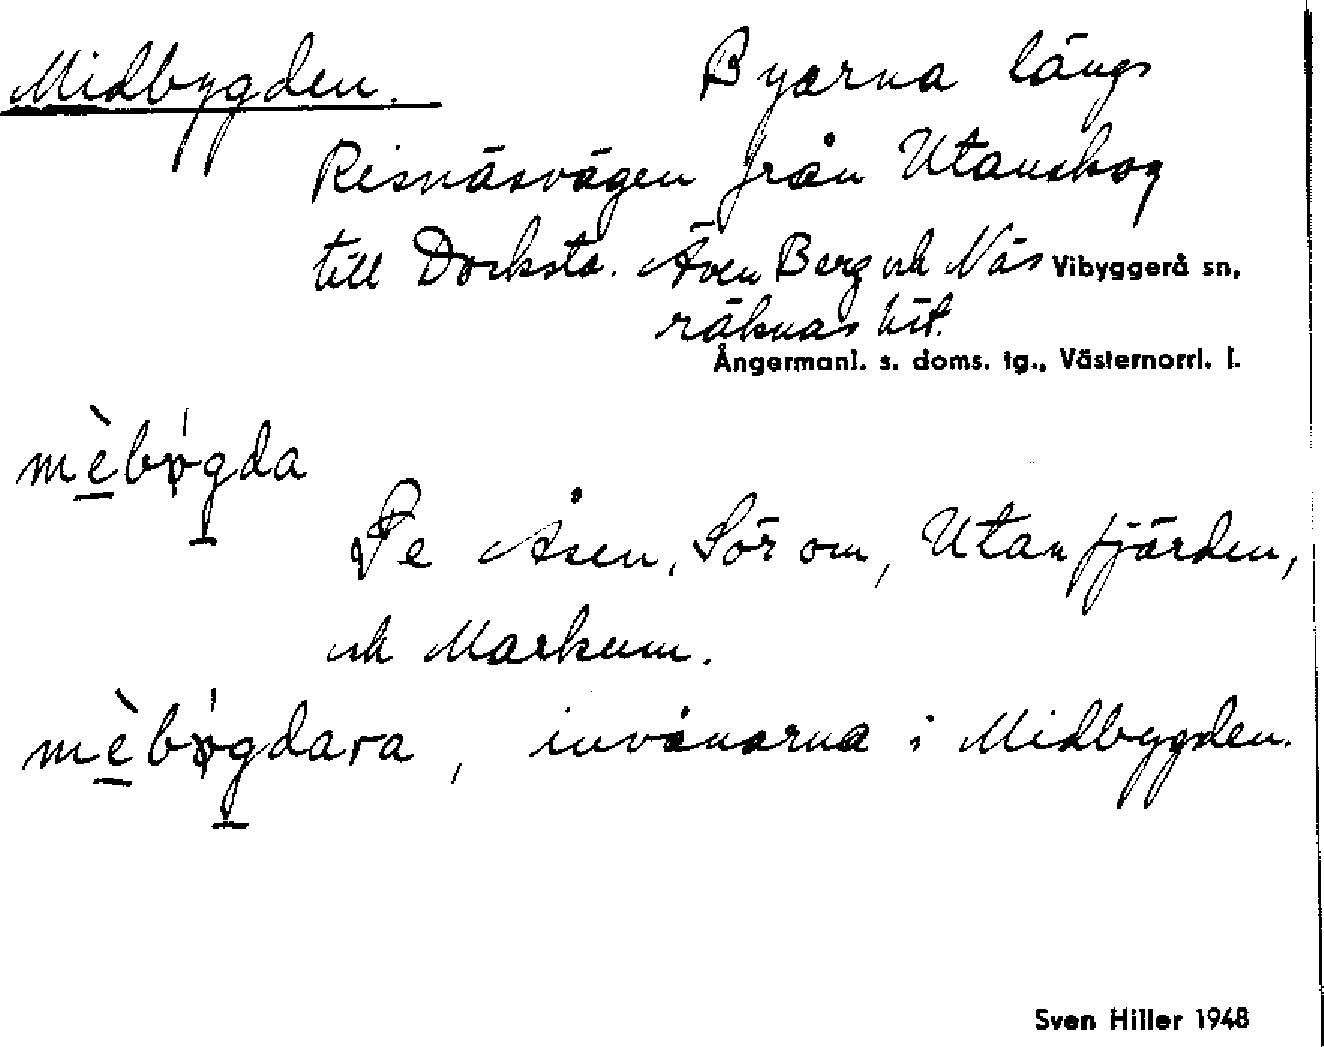 Midbygden. Byarna längs
Risnäsvägen från Utanskog
till Docksta. Även Berg och Näs Vibyggerå sn,
räknas hit.
Ångermanl. s. doms. tg., Västernorrl. l.
mèbǿgda
Se Åsen, Sör om, Utanfjärden,
och Markum.
mèbǿgdara, invånarna i Midbygden.
Sven Hiller 1948